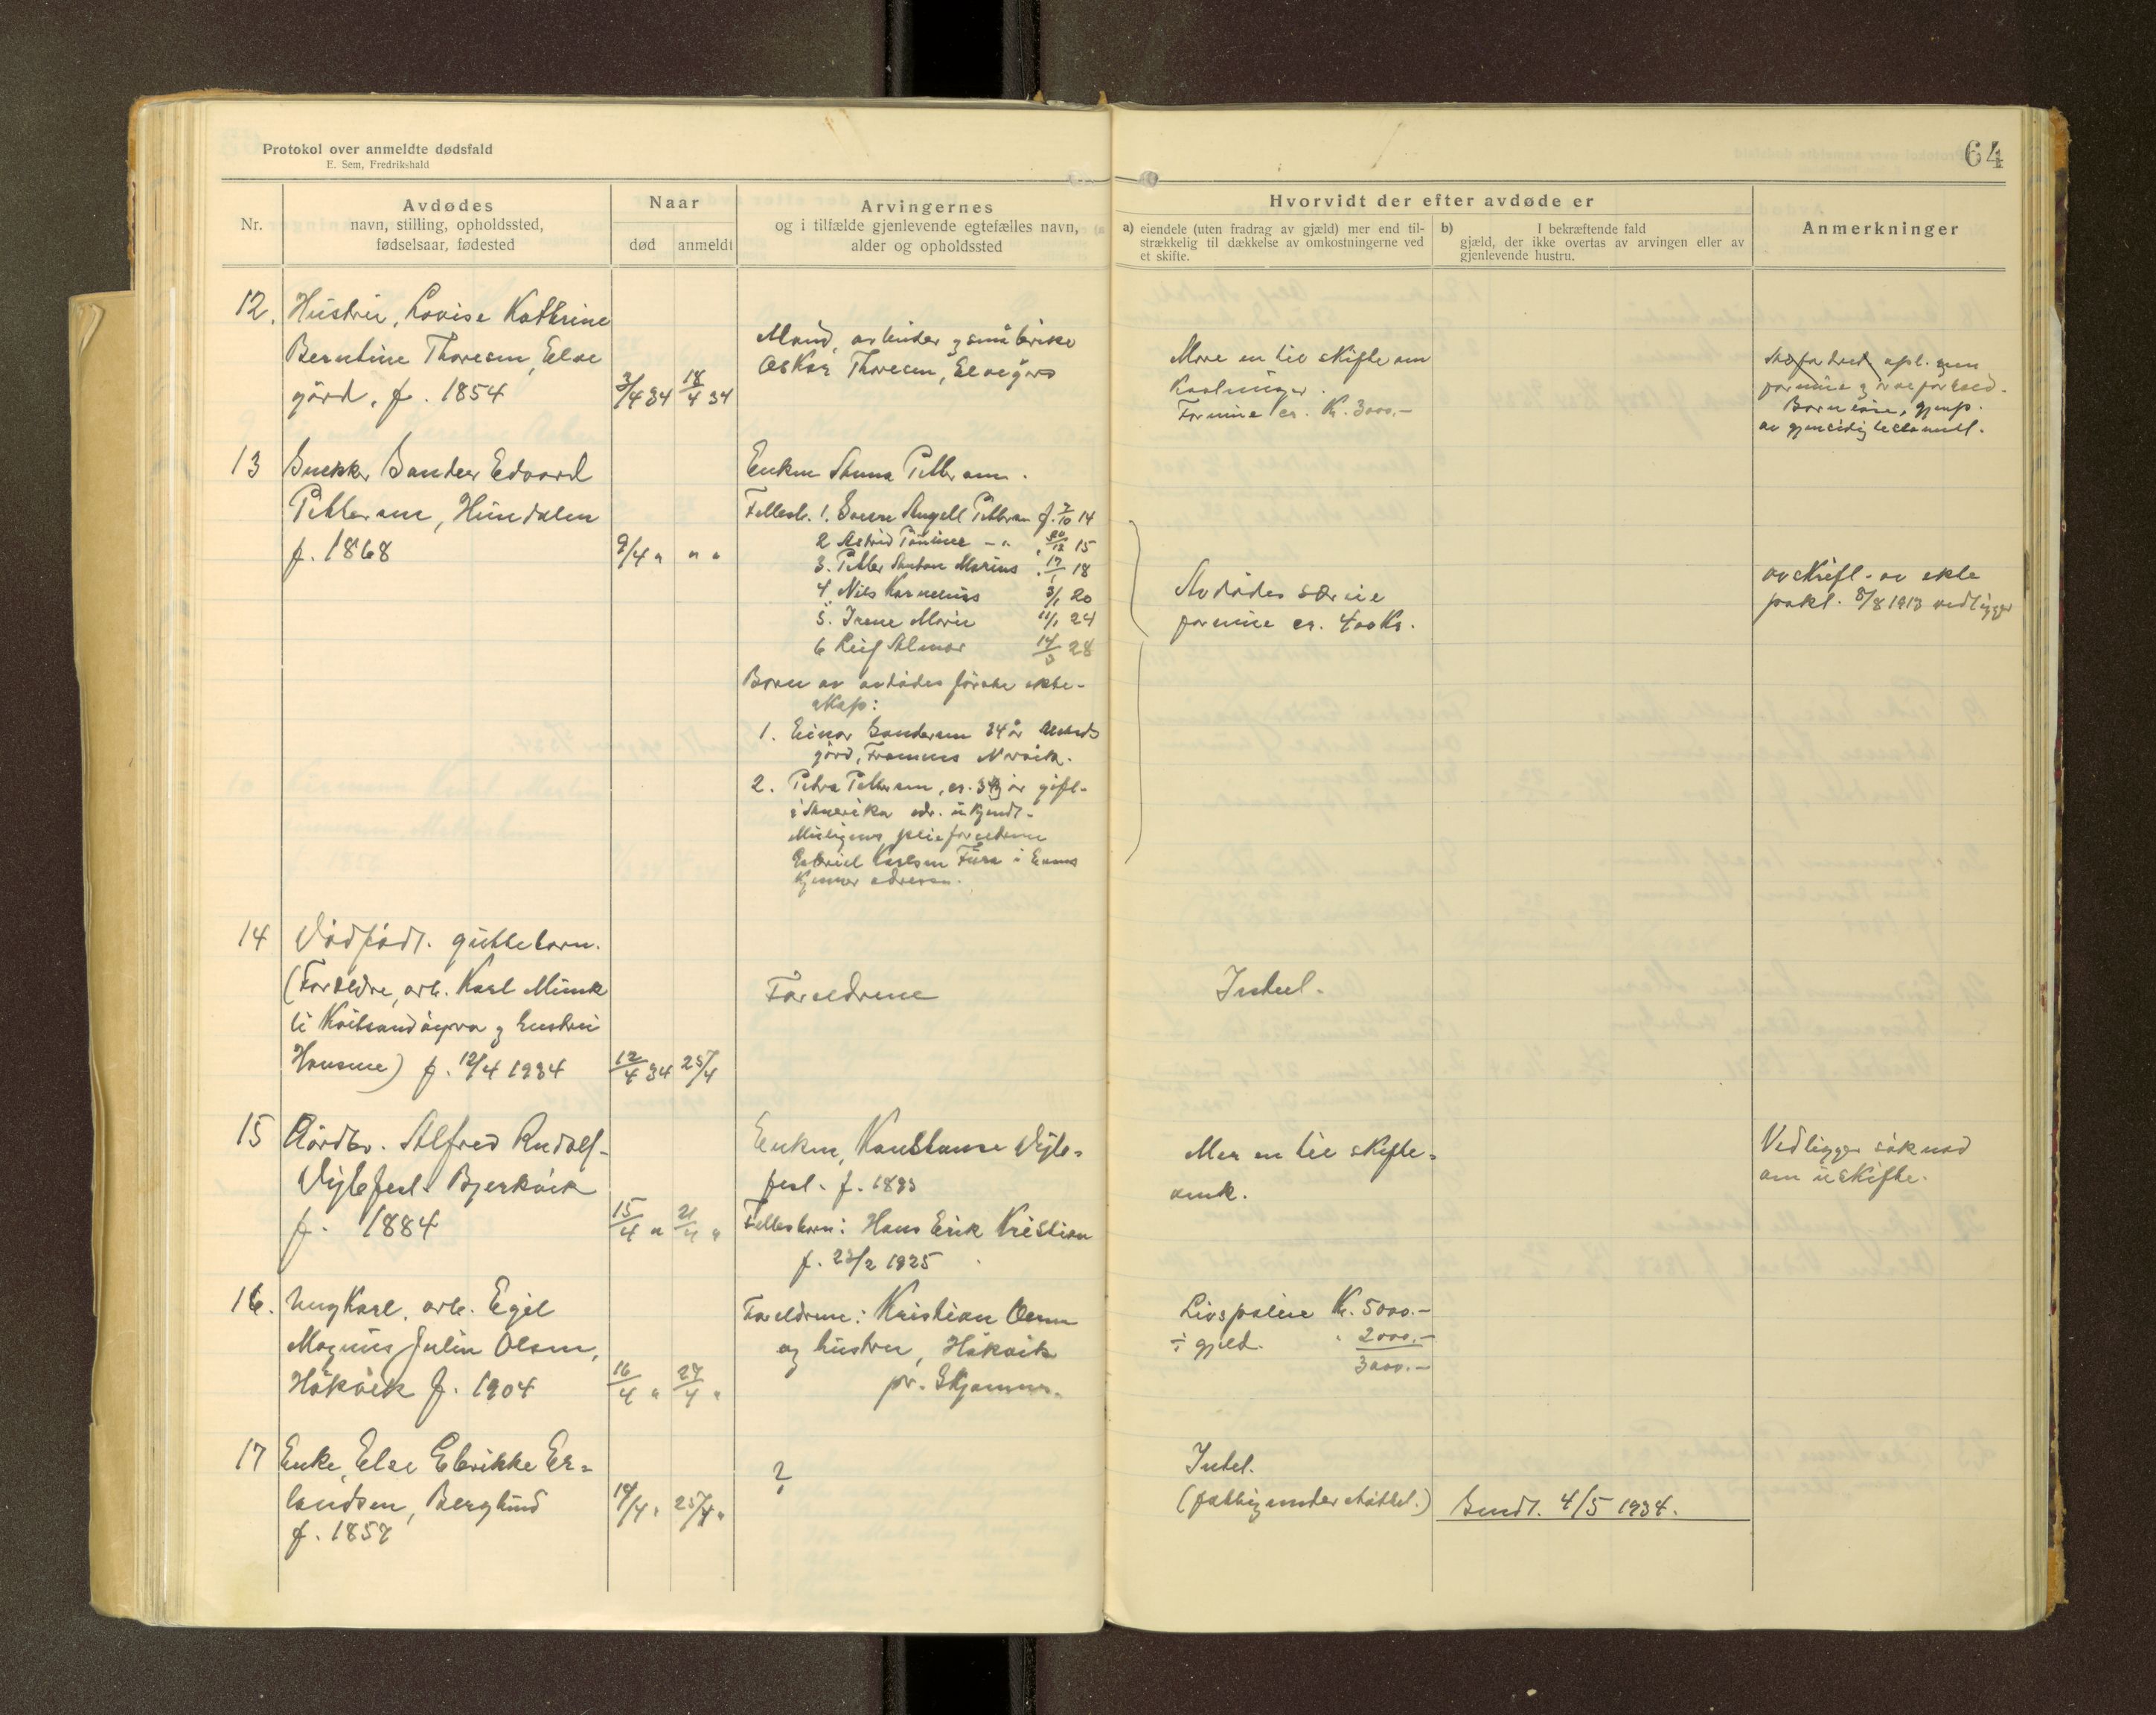 Protokol over anmeldte dødsfald
E. Sem, Fredrikshald
64
Nr.
Avdødes
navn, stilling, opholdssted,
fødselsaar, fødested
Naar
død
anmeldt
Arvingernes
og i tilfælde gjenlevende egtefælles navn,
alder og opholdssted
Hvorvidt der efter avdøde er
a) eiendele (uten fradrag av gjæld) mer end til-
strækkelig til dækkelse av omkostningerne ved
et skifte.
b) I bekræftende fald
gjæld, der ikke overtas av arvingen eller av
gjenlevende hustru.
Anmerkninger
12. Hustru, Lovise Kathrine
Berntine Thoresen, Elve
gård, f. 1854
3/4 34 18/4 34
Mand, arbeider og småbruker
Oskar Thoresen, Elvegård
Mere en til skifteom
kostninger.
Formue ca. Kr. 3000.-
formue
av gjensidig testament.
13 Snekker Sander Edvard
Pettersen, Hundalen
f. 1868
9/4 " " "
Enken Anna Pettersen.
Fellesb. 1. Angell Pettersen f. 7/10 14
2 Astrid -"- " 20/12 15
3. Petter Anton Marius " 17/1 18
4 Nils Kornelius 3/1 20
5. Irene Marie 11/1 24
6 Leif Almar 14/3 28
Barn av avdødes første ekte-
skap:
1. Einar Sandersen 34 år
gård, Framnes Narvik.
2. Petra Pettersen, ca. år gift
i Amerika adr. ukjendt.
Muligens pleieforeldrene
Gabriel Karlsen i
kjenner adressen.
Avdødes særeie
formue ca. 400 Kr.
avskrift av ekte
pakt. 8/8 1913 vedligger
14 Dødfødt guttebarn.
(Foreldre, arb. Karl Munk
li og hustru
Hansine) f. 12/4 1934
12/4 34 25/4
Foreldrene
Intet.
15 Gårdbr. Alfred Rudolf
Bjerkvik
f. 1884
15/4 " 21/4 "
Enken, Konstanse
f. 1893
Fellesbarn: Hans Erik Kristian
f. 23/2 1925
Mer en til skifte=
omk.
Vedligger søknad
om uskifte.
16. Ungkarl, arb. Egil
Magnus Julin Olsen,
Håkvik f. 1904
16/4 " 27/4 "
Foreldrene: Kristian Olsen
og hustru, Håkvik
pr. Skjomnes.
Livspolise Kr. 5000.-
÷ gjeld. " 2000.-
3000.-
17 Enke, Else Elerikke Er=
landsen, Berglund
f. 1857
19/4 " 25/4 "
?
Intet.
(fattigunderstøttet.)
Sendt. 4/5 1934.